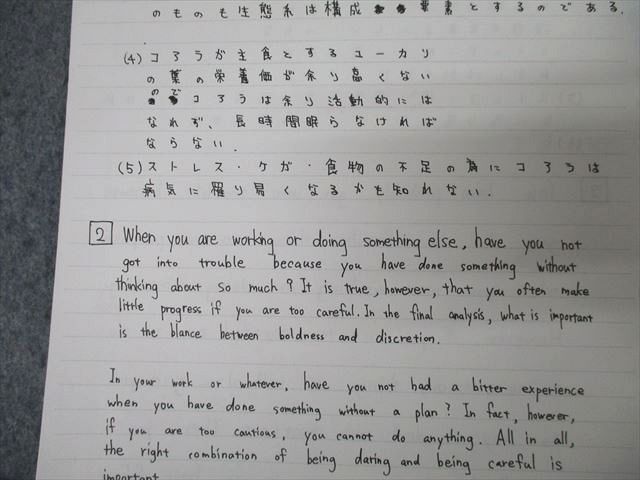 のものも生態系は構成 要素とするのである.
(4) コアラが主食とするユーカリ
の葉の栄養価が余り高くない
ので コアラは余り活動的には
なれず、長時間眠らなければ
ならない.
(5) ストレス・ケガ・食物の不足の為にコアラは
病気に罹り易くなるかも知れない.
2 When you are working or doing something else, have you not
got into trouble because you have done something without
thinking about so much? It is true, however, that you often make
little progress if you are too careful. In the final analysis, what is important
is the blance between boldness and discretion.
In your work or whatever, have you not had a bitter experience
when you have done something without a plan? In fact, however,
if you are too cautious, you cannot do anything. All in all,
the right combination of being daring and being careful is
important